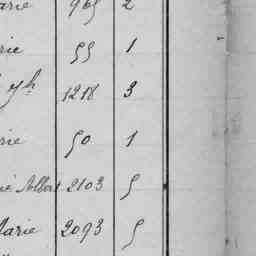 arie 965 2
rie 55 1
yh 1218 3
rie 50 1
Albert 2103 5
Marie 2093 5